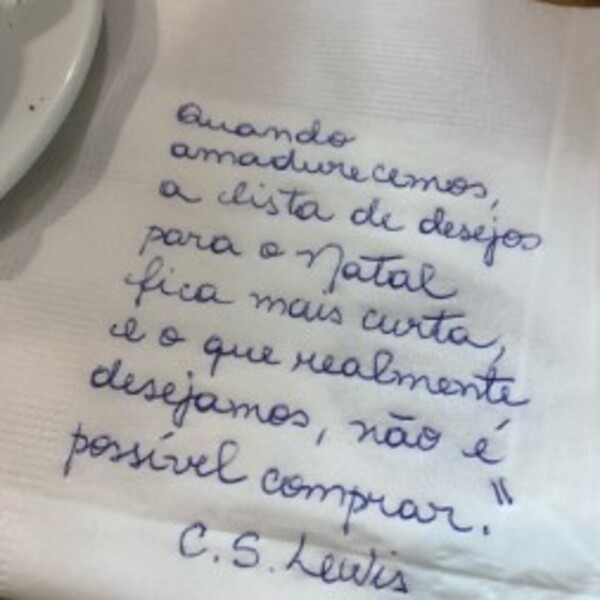 Quando
amadurecemos,
a lista de desejos
para o Natal
fica mais curta,
e o que realmente
desejamos, não é
possível comprar."
C.S. Lewis